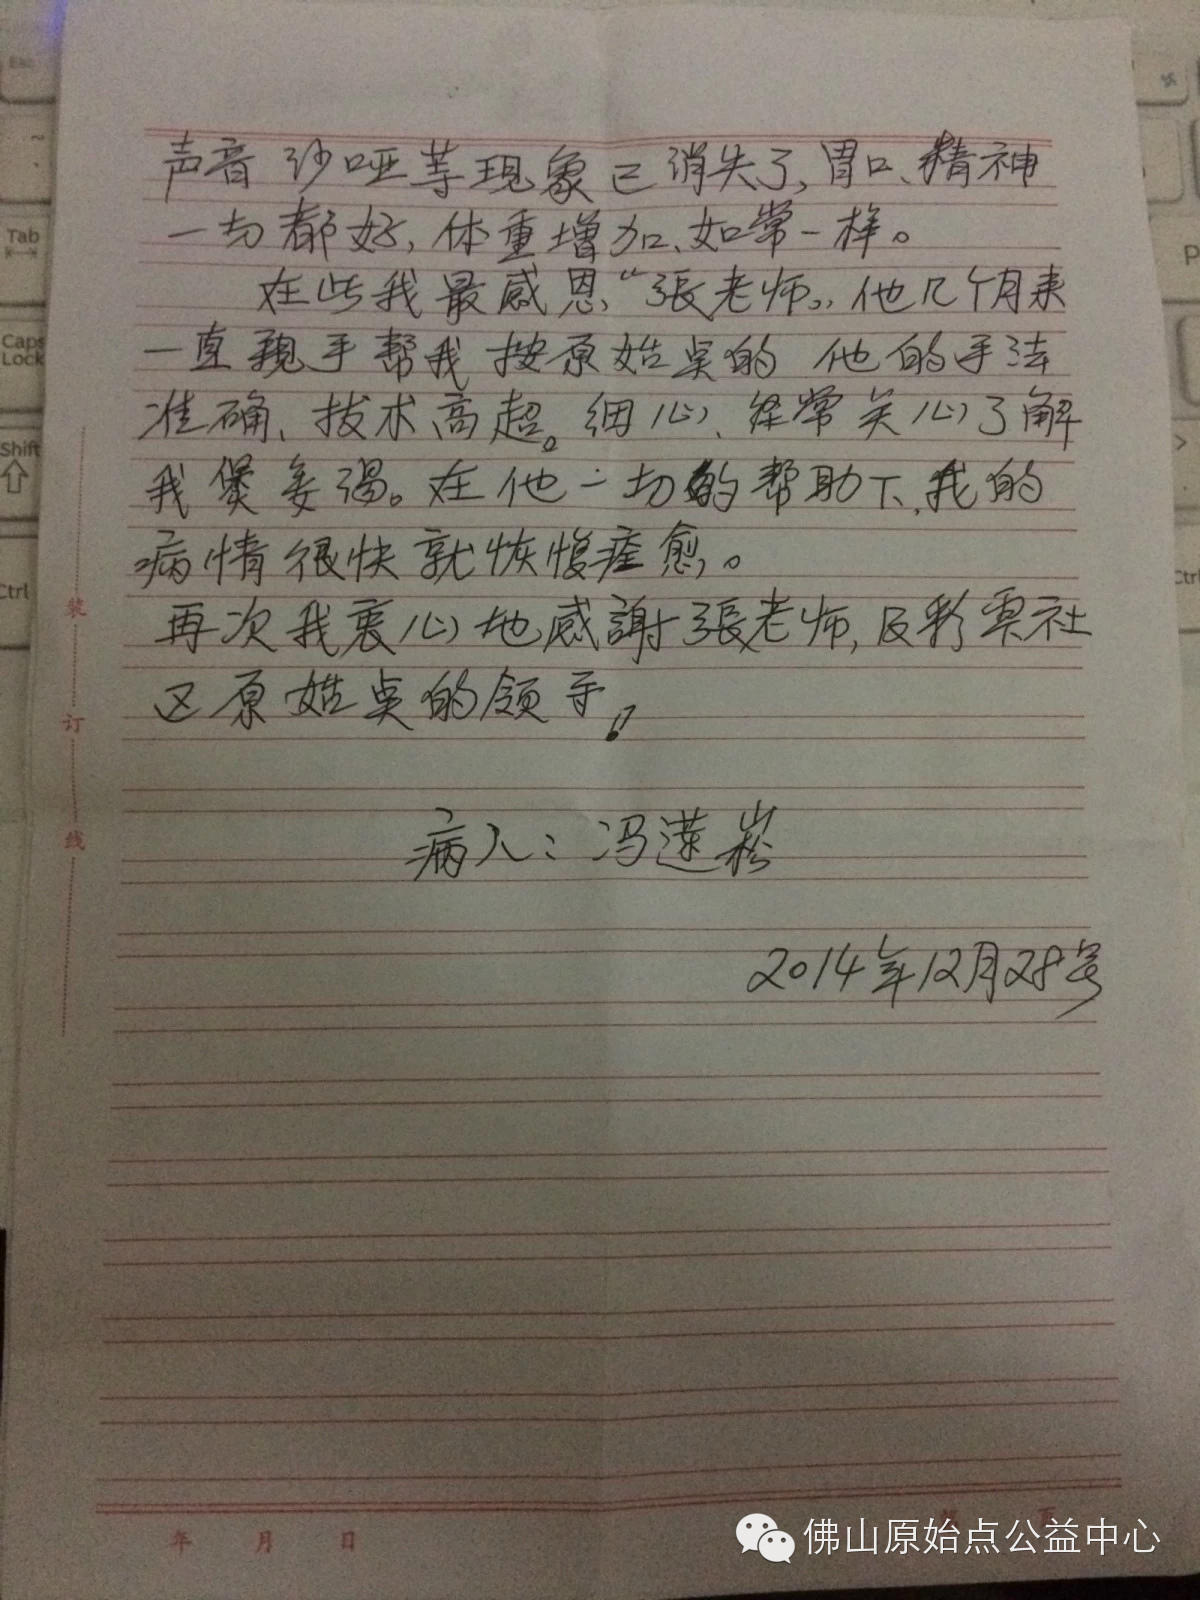 声音沙哑等现象已消失了,胃口、精神
一切都好,体重增加、如常一样。
在些我最感恩“張老师”,他几个月来
一直親手帮我按原始点的 他的手法
准确、技术高超。细心、经常关心了解
我煲姜湯。在他一切的帮助下,我的
病情很快就恢愎痊愈。
再次我衷心地感謝張老师,及彩雲社
这原始点的领手!
病人:冯莲崧
2014年12月28号
装
订
线
年 月 日
页
佛山原始点公益中心
Esc
Tab
Caps
Lock
Shift
Ctrl
Ctrl
P